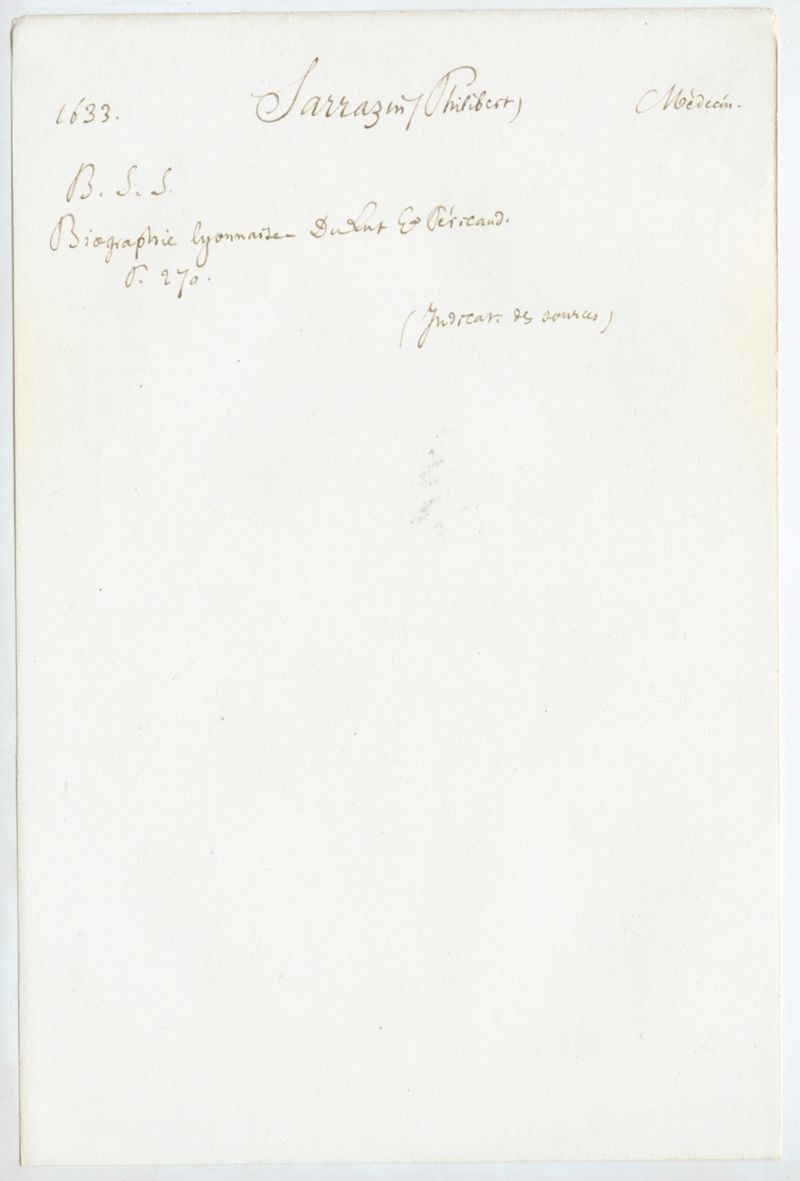 1633. Sarrazin (Philibert) Médecin.
B. S. S.
Biographie lyonnaise - Du Lut & Péricaud.
P. 270.
(Indicat. des sources)